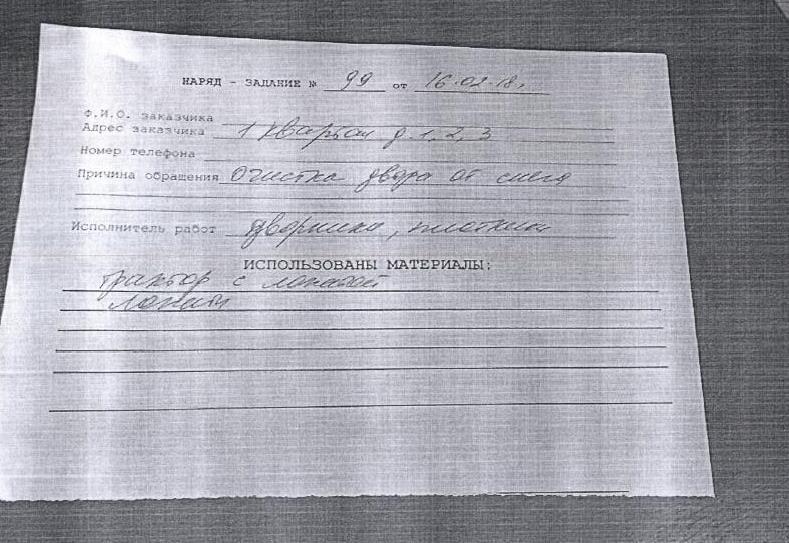 НАРЯД - ЗАДАНИЕ № 99 от 16.02.18г
Ф.И.О. заказчика
Адрес заказчика 1 квартал д. 1, 2, 3
Номер телефона
Причина обращения Очистка двора от снега
Исполнитель работ дворники, плотники
ИСПОЛЬЗОВАНЫ МАТЕРИАЛЫ:
трактор с лопатой
лопаты